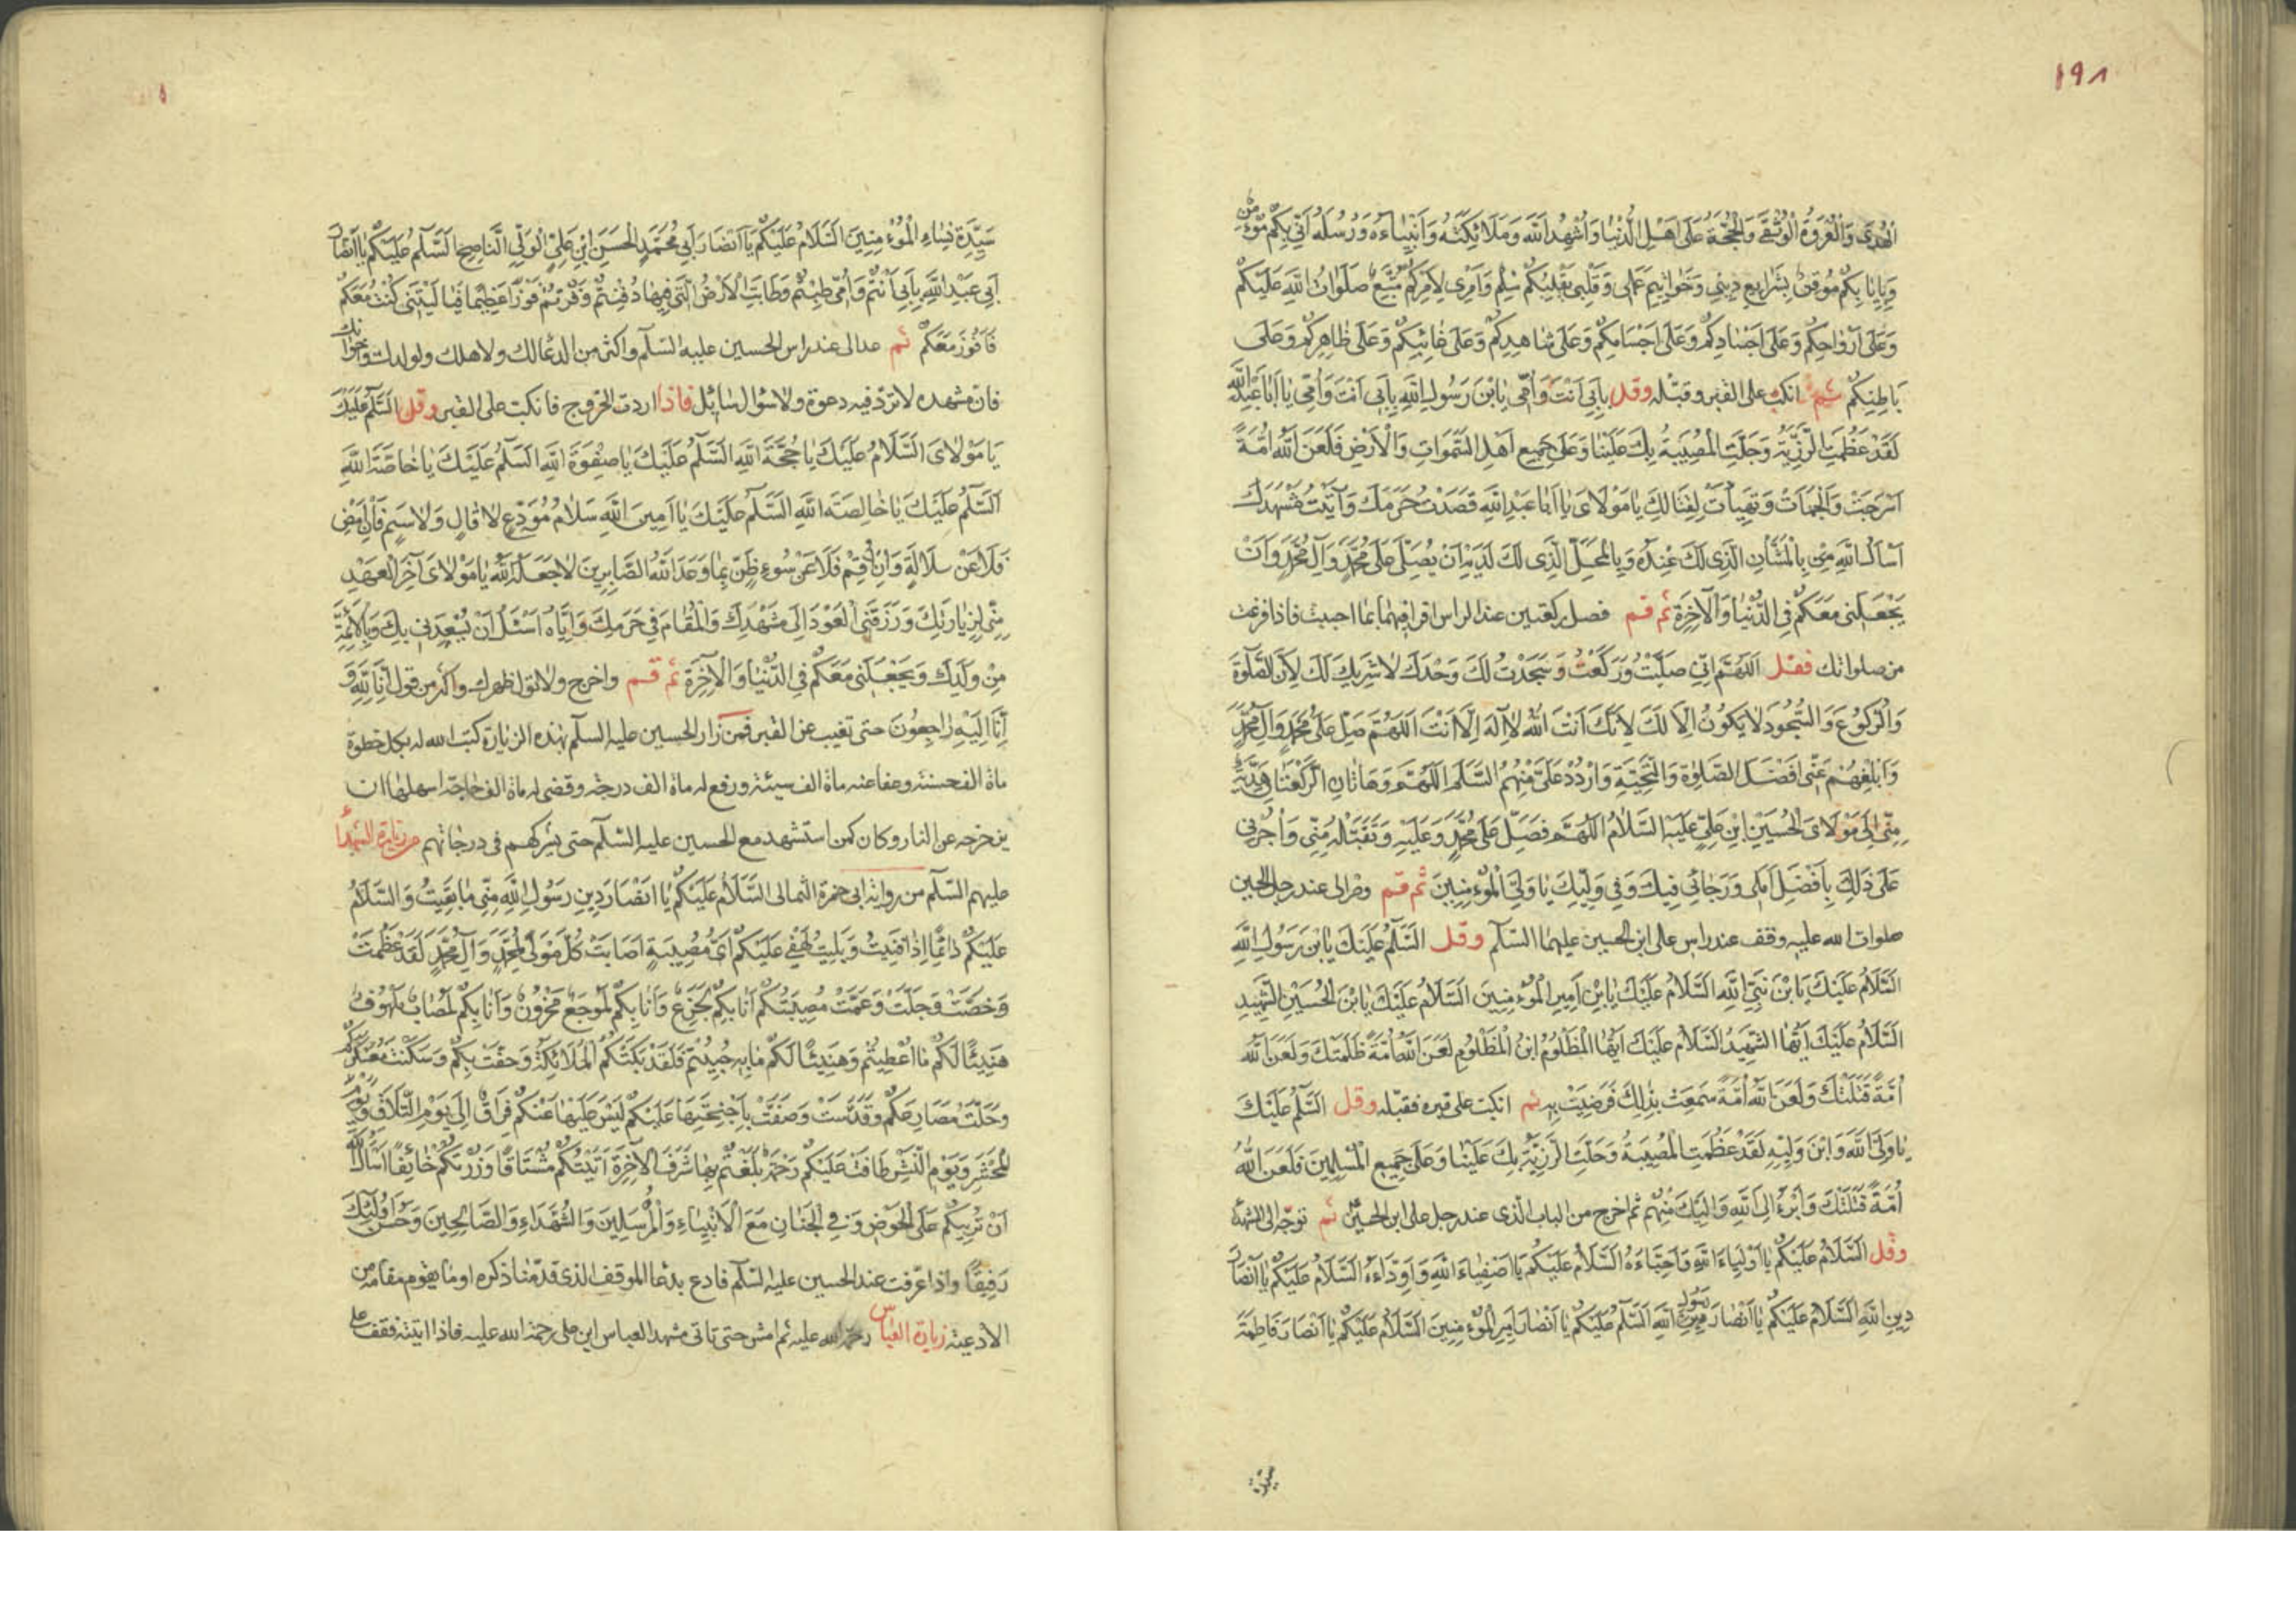 ١٩٨
الْهُدَى وَالْعُرْوَةُ الْوُثْقَى وَالْحُجَّةُ عَلَى اَهْلِ الدُّنْيَا وَاُشْهِدُ اللَّهَ وَمَلَائِكَتَهُ وَاَنْبِيَاءَهُ وَرُسُلَهُ اَنِّي بِكُمْ مُؤْمِنٌ
وَبِاِيَابِكُمْ مُوقِنٌ بِشَرَايِعِ دِينِي وَخَوَاتِيمِ عَمَلِي وَقَلْبِي لِقَلْبِكُمْ سِلْمٌ وَاَمْرِي لِاَمْرِكُمْ مُتَّبِعٌ صَلَوَاتُ اللَّهِ عَلَيْكُمْ
وَعَلَى اَرْوَاحِكُمْ وَعَلَى اَجْسَادِكُمْ وَعَلَى اَجْسَامِكُمْ وَعَلَى شَاهِدِكُمْ وَعَلَى غَائِبِكُمْ وَعَلَى ظَاهِرِكُمْ وَعَلَى
بَاطِنِكُمْ ثم انكب على القبر وقبّله وقل بِاَبِي اَنْتَ وَاُمِّي يَا بْنَ رَسُولِ اللَّهِ بِاَبِي اَنْتَ وَاُمِّي يَا اَبَا عَبْدِ اللَّهِ
لَقَدْ عَظُمَتِ الرَّزِيَّةُ وَجَلَّتِ الْمُصِيبَةُ بِكَ عَلَيْنَا وَعَلَى جَمِيعِ اَهْلِ السَّمَوَاتِ وَالْاَرْضِ فَلَعَنَ اللَّهُ اُمَّةً
اَسْرَجَتْ وَاَلْجَمَتْ وَتَهَيَّأَتْ لِقِتَالِكَ يَا مَوْلَايَ يَا اَبَا عَبْدِ اللَّهِ قَصَدْتُ حَرَمَكَ وَاَتَيْتُ مَشْهَدَكَ
اَسْاَلُ اللَّهَ بِالشَّأْنِ الَّذِي لَكَ عِنْدَهُ وَبِالْمَحَلِّ الَّذِي لَكَ لَدَيْهِ اَنْ يُصَلِّيَ عَلَى مُحَمَّدٍ وَآلِ مُحَمَّدٍ وَاَنْ
يَجْعَلَنِي مَعَكُمْ فِي الدُّنْيَا وَالْآخِرَةِ ثم قم فصل ركعتين عند الراس اقرا فيهما بما احببت فاذا فرغت
من صلواتك فقل اَللَّهُمَّ اِنِّي صَلَّيْتُ وَرَكَعْتُ وَسَجَدْتُ لَكَ وَحْدَكَ لَا شَرِيكَ لَكَ لِاَنَّ الصَّلٰوةَ
وَالرُّكُوعَ وَالسُّجُودَ لَا يَكُونُ اِلَّا لَكَ لِاَنَّكَ اَنْتَ اللَّهُ لَا اِلَهَ اِلَّا اَنْتَ اَللَّهُمَّ صَلِّ عَلَى مُحَمَّدٍ وَآلِ مُحَمَّدٍ
وَاَبْلِغْهُمْ عَنِّي اَفْضَلَ الصَّلٰوةِ وَالتَّحِيَّةِ وَارْدُدْ عَلَيَّ مِنْهُمُ السَّلَمَ اَللَّهُمَّ وَهَاتَانِ الرَّكْعَتَانِ هَدِيَّةٌ
مِنِّي اِلَى مَوْلَايَ الْحُسَيْنِ ابْنِ عَلِيٍّ عَلَيْهِ السَّلَامُ اَللَّهُمَّ فَصَلِّ عَلَى مُحَمَّدٍ وَعَلَيْهِ وَتَقَبَّلْهُ مِنِّي وَاْجُرْنِي
عَلَى ذَلِكَ بِاَفْضَلِ اَمَلِي وَرَجَائِي فِيكَ وَفِي وَلِيِّكَ يَا وَلِيَّ الْمُؤْمِنِينَ ثم قم وصر الى عند رجل الحسين
صلوات الله عليه وقف عند راس على ابن الحسين عليهما السلم وقل السَّلَمُ عَلَيْكَ يَا بْنَ رَسُولِ اللَّهِ
السَّلَامُ عَلَيْكَ يَا بْنَ نَبِيِّ اللَّهِ السَّلَامُ عَلَيْكَ يَا بْنَ اَمِيرِ الْمُؤْمِنِينَ السَّلَامُ عَلَيْكَ يَا بْنَ الْحُسَيْنِ الشَّهِيدِ
السَّلَامُ عَلَيْكَ اَيُّهَا الشَّهِيدُ السَّلَامُ عَلَيْكَ اَيُّهَا الْمَظْلُومُ ابْنُ الْمَظْلُومِ لَعَنَ اللَّهُ اُمَّةً ظَلَمَتْكَ وَلَعَنَ اللَّهُ
اُمَّةً قَتَلَتْكَ وَلَعَنَ اللَّهُ اُمَّةً سَمِعَتْ بِذَلِكَ فَرَضِيَتْ بِهِ ثم انكبّ على قبره فقبّله وقل السَّلَمُ عَلَيْكَ
يَا وَلِيَّ اللَّهِ وَابْنَ وَلِيِّهِ لَقَدْ عَظُمَتِ الْمُصِيبَةُ وَجَلَّتِ الرَّزِيَّةُ بِكَ عَلَيْنَا وَعَلَى جَمِيعِ الْمُسْلِمِينَ فَلَعَنَ اللَّهُ
اُمَّةً قَتَلَتْكَ وَاَبْرَءُ اِلَى اللَّهِ وَاِلَيْكَ مِنْهُمْ ثم اخرج من الباب الذى عند رجل على ابن الحسين ثم توجّه الى الشهدا
وقل السَّلَامُ عَلَيْكُمْ يَا اَوْلِيَاءَ اللَّهِ وَاَحِبَّاءَهُ السَّلَامُ عَلَيْكُمْ يَا اَصْفِيَاءَ اللَّهِ وَاَوِدَّاءَهُ السَّلَامُ عَلَيْكُمْ يَا اَنْصَارَ
دِينِ اللَّهِ السَّلَامُ عَلَيْكُمْ يَا اَنْصَارَ رَسُولِ اللَّهِ السَّلَمُ عَلَيْكُمْ يَا اَنْصَارَ اَمِيرِ الْمُؤْمِنِينَ السَّلَامُ عَلَيْكُمْ يَا اَنْصَارَ فَاطِمَةَ
سيدة
سَيِّدَةِ نِسَاءِ الْمُؤْمِنِينَ السَّلَامُ عَلَيْكُمْ يَا اَنْصَارَ اَبِي مُحَمَّدٍ الْحَسَنِ ابْنِ عَلِيٍّ الْوَلِيِّ النَّاصِحِ السَّلَمُ عَلَيْكُمْ يَا اَنْصَارَ
اَبِي عَبْدِ اللَّهِ بِاَبِي اَنْتُمْ وَاُمِّي طِبْتُمْ وَطَابَتِ الْاَرْضُ الَّتِي فِيهَا دُفِنْتُمْ وَفُزْتُمْ فَوْزًا عَظِيمًا فَيَا لَيْتَنِي كُنْتُ مَعَكُمْ
فَاَفُوزَ مَعَكُمْ ثم عد الى عند راس الحسين عليه السلم واكثر من الدعا لك ولاهلك ولولدك واخوانك
فان مشهده لا تردّ فيه دعوة ولا سؤال سائل فاذا اردت الخروج فانكبّ على القبر وقل السَّلَمُ عَلَيْكَ
يَا مَوْلَايَ السَّلَامُ عَلَيْكَ يَا حُجَّةَ اللَّهِ السَّلَمُ عَلَيْكَ يَا صَفْوَةَ اللَّهِ السَّلَمُ عَلَيْكَ يَا خَاصَّةَ اللَّهِ
السَّلَمُ عَلَيْكَ يَا خَالِصَةَ اللَّهِ السَّلَمُ عَلَيْكَ يَا اَمِينَ اللَّهِ سَلَامَ مُوَدِّعٍ لَا قَالٍ وَلَا سَئِمٍ فَاِنْ اَمْضِ
فَلَا عَنْ مَلَالَةٍ وَاِنْ اُقِمْ فَلَا عَنْ سُوءِ ظَنٍّ بِمَا وَعَدَ اللَّهُ الصَّابِرِينَ لَا جَعَلَهُ اللَّهُ يَا مَوْلَايَ آخِرَ الْعَهْدِ
مِنِّي لِزِيَارَتِكَ وَرَزَقَنِي الْعَوْدَ اِلَى مَشْهَدِكَ وَالْمُقَامَ فِي حَرَمِكَ وَاِيَّاهُ اَسْئَلُ اَنْ يُسْعِدَنِي بِكَ وَبِالْاَئِمَّةِ
مِنْ وُلْدِكَ وَيَجْعَلَنِي مَعَكُمْ فِي الدُّنْيَا وَالْآخِرَةِ ثم قم واخرج ولا تول ظهرك واكثر من قول اِنَّا لِلَّهِ وَ
اِنَّا اِلَيْهِ رَاجِعُونَ حتى تغيب عن القبر فمن زار الحسين عليه السلم بهذه الزيارة كتب الله له بكل خطوة
ماة الف حسنة وعفا عنه ماة الف سيئة ورفع له ماة الف درجة وقضى له ماة الف حاجة اسهلها ان
يزحزحه عن النار وكان كمن استشهد مع الحسين عليه السلم حتى يشركهم فى درجاتهم من زيارة الشهدا
عليهم السلم من رواية ابى حمزة الثمالى السَّلَامُ عَلَيْكُمْ يَا اَنْصَارَ دِينِ رَسُولِ اللَّهِ مِنِّي مَا بَقِيتُ وَالسَّلَامُ
عَلَيْكُمْ دَائِمًا اِذَا فَنِيتُ وَبَلِيتُ لَهْفِي عَلَيْكُمْ اَيُّ مُصِيبَةٍ اَصَابَتْ كُلَّ مَوْلًى لِمُحَمَّدٍ وَآلِ مُحَمَّدٍ لَقَدْ عَظُمَتْ
وَخَصَّتْ وَجَلَّتْ وَعَمَّتْ مُصِيبَتُكُمْ اَنَا بِكُمْ لَجَزِعٌ وَاَنَا بِكُمْ لَمُوجَعٌ مَحْزُونٌ وَاَنَا بِكُمْ لَمُصَابٌ مَلْهُوفٌ
هَنِيئًا لَكُمْ مَا اُعْطِيتُمْ وَهَنِيئًا لَكُمْ مَا بِهِ حُبِيتُمْ فَلَقَدْ بَكَتْكُمُ الْمَلَائِكَةُ وَحَفَّتْ بِكُمْ وَسَكَنَتْ مُعَسْكَرَكُمْ
وَحَلَّتْ مَصَارِعَكُمْ وَقَدَّسَتْ وَصَفَّتْ بِاَجْنِحَتِهَا عَلَيْكُمْ لَيْسَ لَهَا عَنْكُمْ فِرَاقٌ اِلَى يَوْمِ التَّلَاقِ وَيَوْمِ
الْمَحْشَرِ وَيَوْمِ الْمَنْشَرِ طَافَتْ عَلَيْكُمْ رَحْمَةٌ بَلَغْتُمْ بِهَا شَرَفَ الْآخِرَةِ اَتَيْتُكُمْ مُشْتَاقًا وَزُرْتُكُمْ خَائِفًا اَسْاَلُ اللَّهَ
اَنْ يُرِيَنِيكُمْ عَلَى الْحَوْضِ وَفِي الْجِنَانِ مَعَ الْاَنْبِيَاءِ وَالْمُرْسَلِينَ وَالشُّهَدَاءِ وَالصَّالِحِينَ وَحَسُنَ اُولٰئِكَ
رَفِيقًا واذا عرفت عند الحسين عليه السلم فادع بدعا الموقف الذى قدّمنا ذكره او ما يقوم مقامه من
الادعية زيارة العباس رحمة الله عليه ثم امش حتى تاتى مشهد العباس ابن على رحمة الله عليه فاذا اتيته فقف على